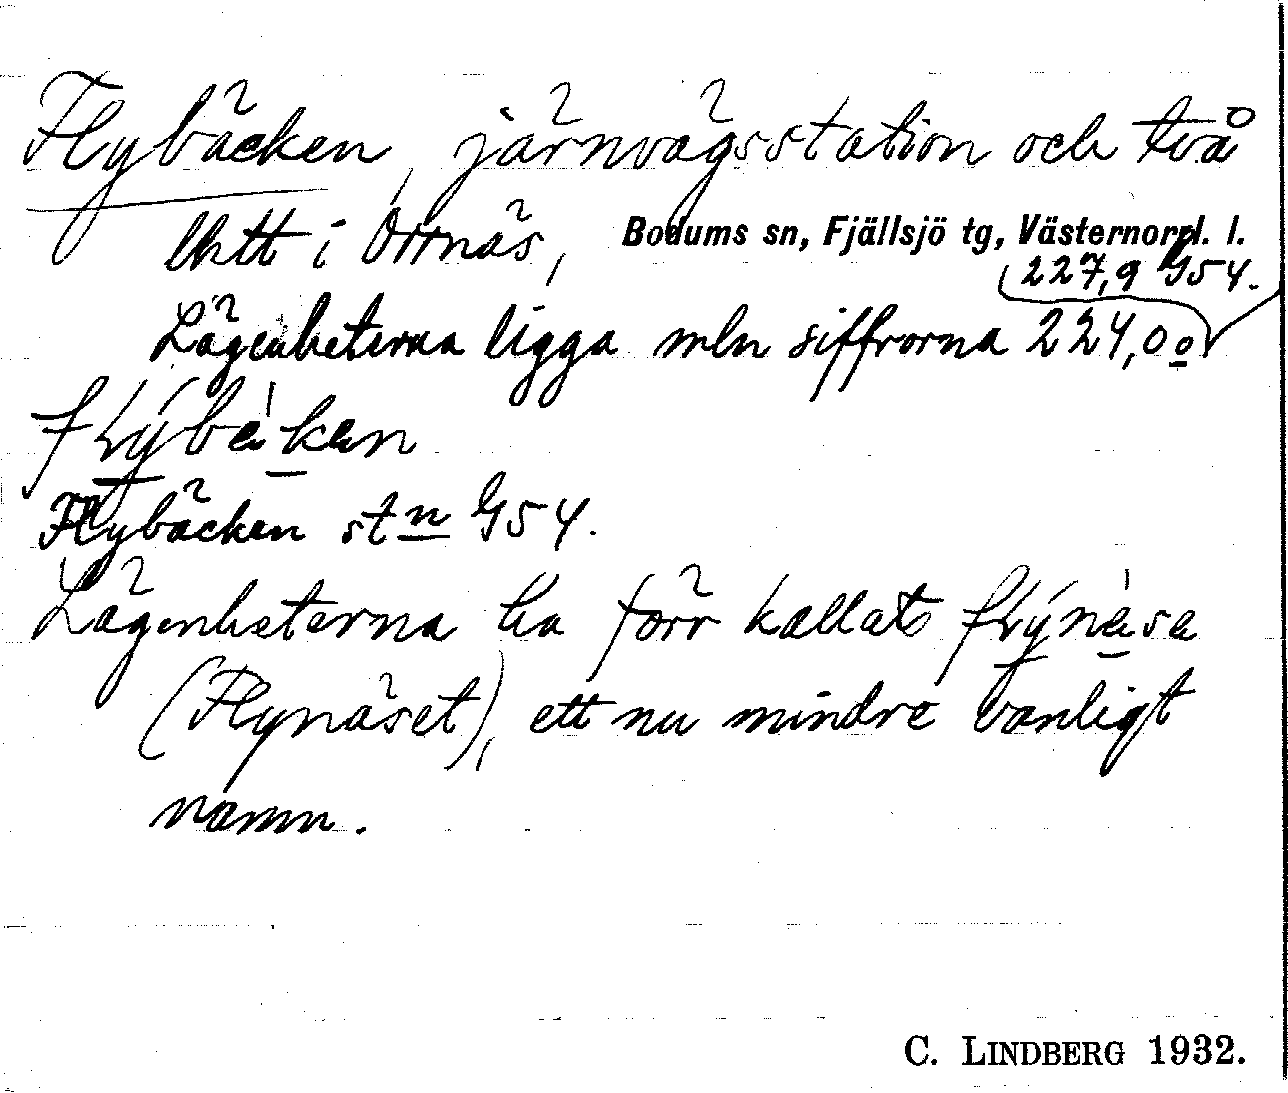 Flybäcken, järnvägsstation och två
lhtt i Orrnäs, Bodums sn, Fjällsjö tg, Västernorrl. l.
Lägenheterna ligga mln siffrorna 224,0 o
227,9 G54.
flýbèken
Flybäcken stn G54.
Lägenheterna ha förr kallats flýnèse
(Flynäset), ett nu mindre vanligt
namn.
C. LINDBERG 1932.